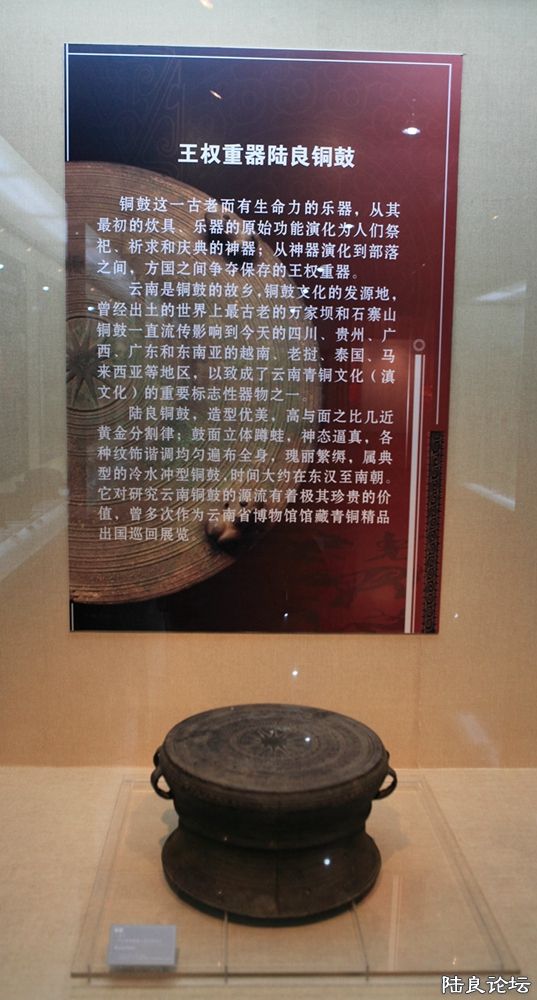 王权重器陆良铜鼓
铜鼓这一古老而有生命力的乐器，从其
最初的炊具、乐器的原始功能演化为人们祭
祀、祈求和庆典的神器；从神器演化到部落
之间，方国之间争夺保存的王权重器。
云南是铜鼓的故乡，铜鼓文化的发源地，
曾经出土的世界上最古老的万家坝和石寨山
铜鼓一直流传影响到今天的四川、贵州、广
西、广东和东南亚的越南、老挝、泰国、马
来西亚等地区，以致成了云南青铜文化（滇
文化）的重要标志性器物之一。
陆良铜鼓，造型优美，高与面之比几近
黄金分割律；鼓面立体蹲蛙，神态逼真，各
种纹饰谐调均匀遍布全身，瑰丽繁缛，属典
型的冷水冲型铜鼓，时间大约在东汉至南朝。
它对研究云南铜鼓的源流有着极其珍贵的价
值，曾多次作为云南省博物馆馆藏青铜精品
出国巡回展览
陆良论坛